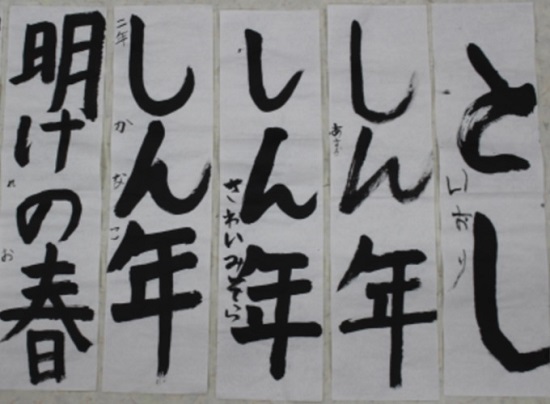 とし
いおり
しん年
しん年
さわいみそら
しん年
二年
かなこ
明けの春
れお